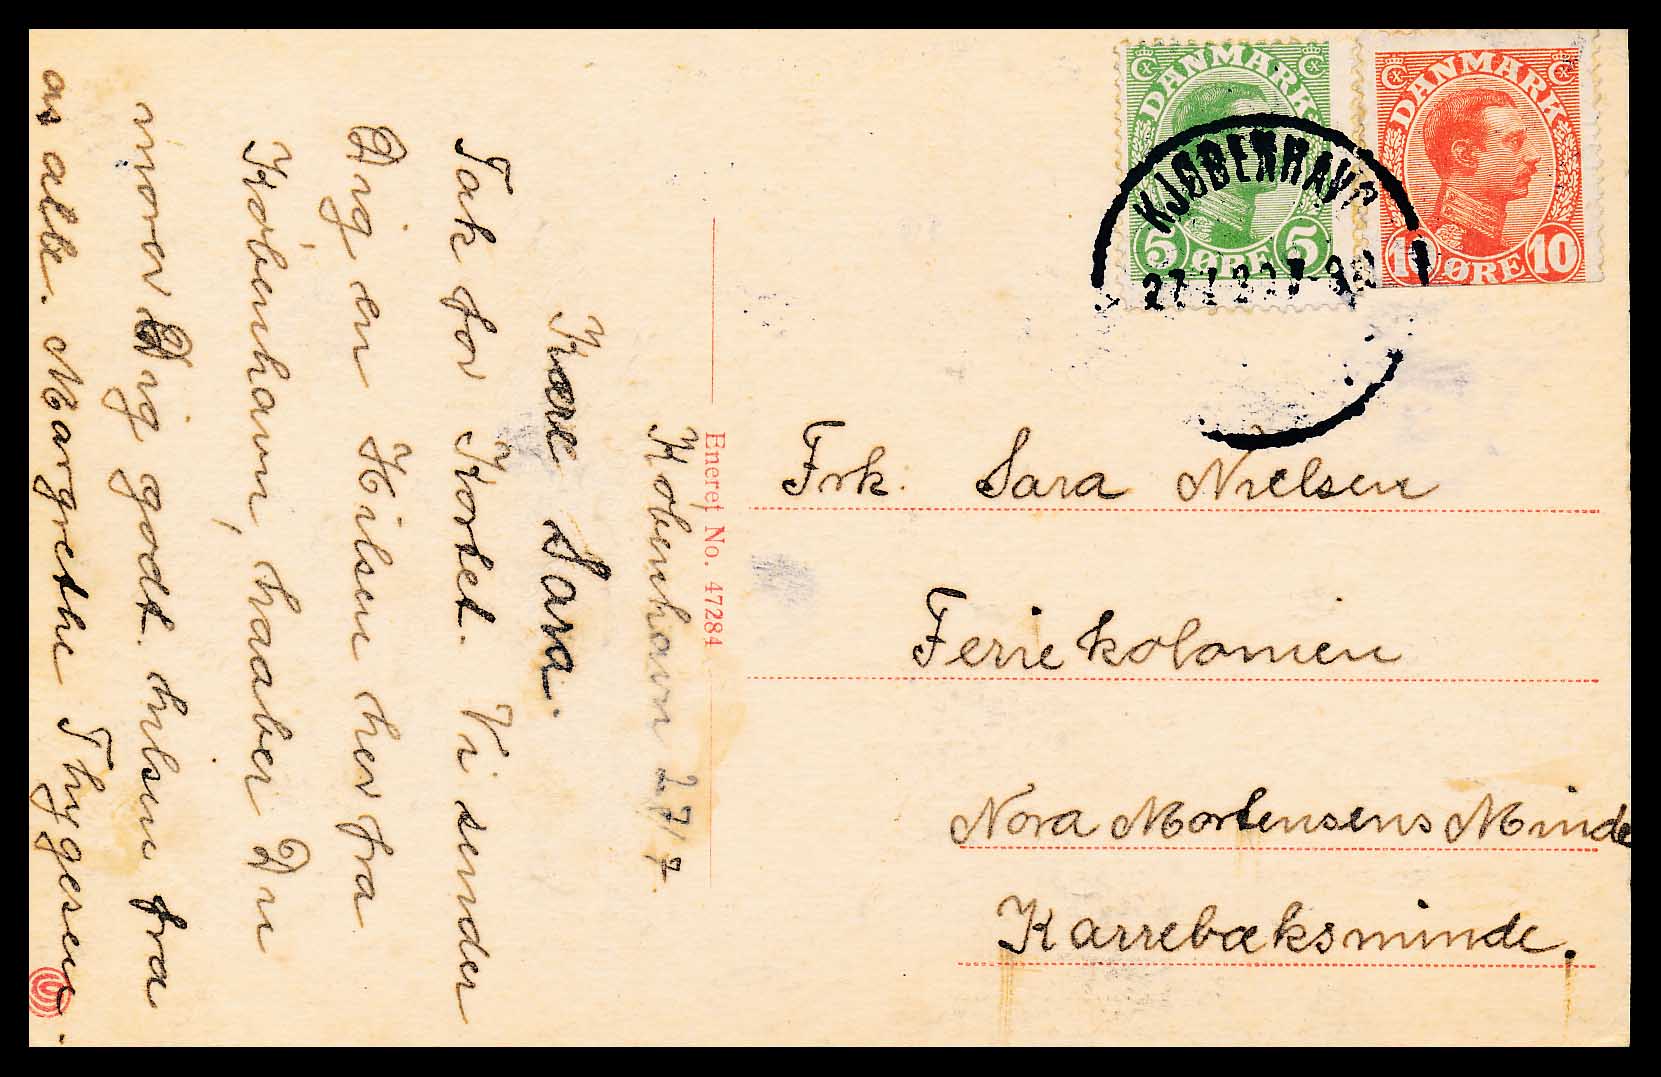 DANMARK
5 ØRE 5
DANMARK
10 ØRE 10
KJØBENHAVN
Eneret No. 47284
København 27/7
Kære Sara.
Tak for Kortet. Vi sender
Dig en Hilsen her fra
København, haaber Du
morer Dig godt. hilsen fra
os alle. Margrethe Thygesen.
Frk. Sara Nielsen
Feriekolonien
Nora Mortensens Minde
Karrebæksminde.